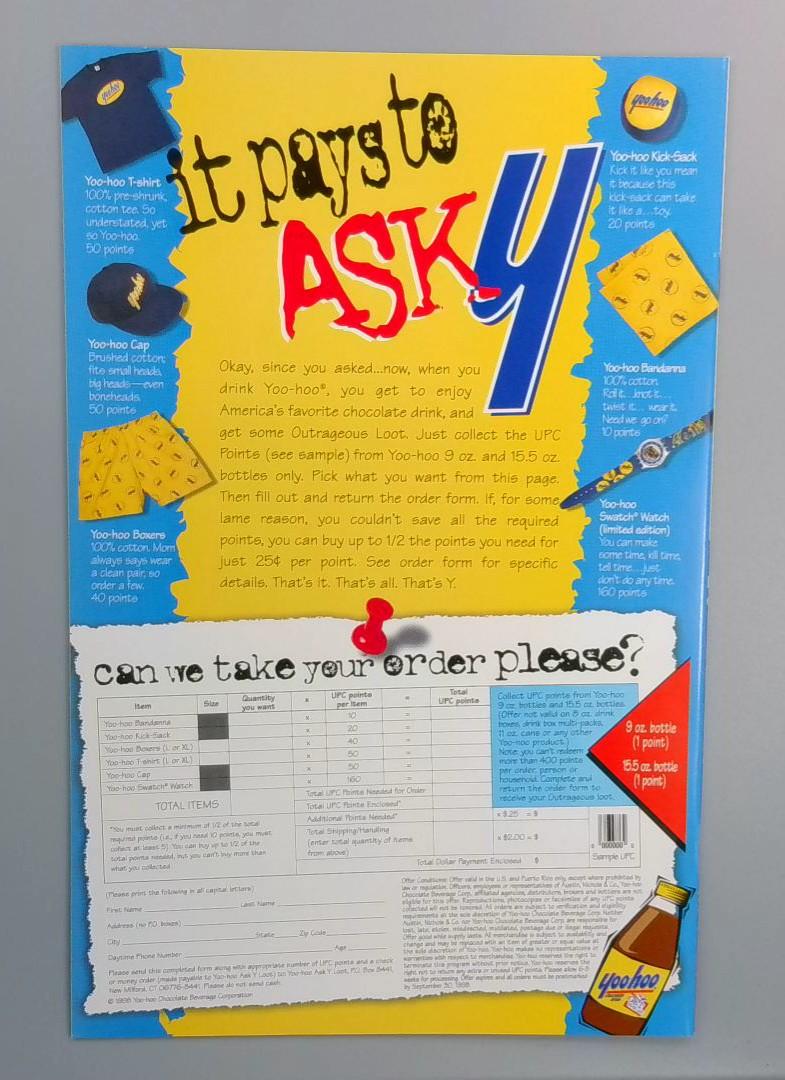 it pays to
ASK Y
yoohoo
Yoo-hoo T-shirt
100% pre-shrunk,
cotton tee. So
understated, yet
so Yoo-hoo.
50 points
yoohoo
Yoo-hoo Cap
Brushed cotton;
fits small heads,
big heads—even
boneheads.
50 points
Yoo-hoo Boxers
100% cotton. Mom
always says wear
a clean pair, so
order a few.
40 points
yoohoo
Yoo-hoo Kick-Sack
Kick it like you mean
it because this
kick-sack can take
it like a...toy.
20 points
Yoo-hoo Bandanna
100% cotton.
Roll it...knot it...
twist it... wear it.
Need we go on?
10 points
Yoo-hoo
Swatch® Watch
(limited edition)
You can make
some time, kill time,
tell time...just
don't do any time.
160 points
Okay, since you asked...now, when you
drink Yoo-hoo®, you get to enjoy
America's favorite chocolate drink, and
get some Outrageous Loot. Just collect the UPC
Points (see sample) from Yoo-hoo 9 oz. and 15.5 oz.
bottles only. Pick what you want from this page.
Then fill out and return the order form. If, for some
lame reason, you couldn't save all the required
points, you can buy up to 1/2 the points you need for
just 25¢ per point. See order form for specific
details. That's it. That's all. That's Y.
can we take your order please?
Item Size Quantity you want x UPC points per Item = Total UPC points
Yoo-hoo Bandanna x 10 =
Yoo-hoo Kick-Sack x 20 =
Yoo-hoo Boxers (L or XL) x 40 =
Yoo-hoo T-shirt (L or XL) x 50 =
Yoo-hoo Cap x 50 =
Yoo-hoo Swatch® Watch x 160 =
TOTAL ITEMS
Total UPC Points Needed for Order
Total UPC Points Enclosed*
Additional Points Needed* x $.25 = $
Total Shipping/Handling
(enter total quantity of items
from above) x $2.00 = $
Total Dollar Payment Enclosed $
*You must collect a minimum of 1/2 of the total
required points (i.e., if you need 10 points, you must
collect at least 5). You can buy up to 1/2 of the
total points needed, but you can't buy more than
what you collected.
Collect UPC points from Yoo-hoo
9 oz. bottles and 15.5 oz. bottles.
(Offer not valid on 8 oz. drink
boxes, drink box multi-packs,
11 oz. cans or any other
Yoo-hoo product.)
Note: you can't redeem
more than 400 points
per order, person or
household. Complete and
return the order form to
receive your Outrageous loot.
9 oz. bottle
(1 point)
15.5 oz. bottle
(1 point)
0 00000 0
Sample UPC
(Please print the following in all capital letters)
First Name Last Name
Address (no P.O. boxes)
City State Zip Code
Daytime Phone Number Age
Please send this completed form along with appropriate number of UPC points and a check
or money order (made payable to Yoo-hoo Ask Y Loot) to: Yoo-hoo Ask Y Loot, P.O. Box 8441,
New Milford, CT 06776-8441. Please do not send cash.
© 1998 Yoo-hoo Chocolate Beverage Corporation
Offer Conditions: Offer valid in the U.S. and Puerto Rico only, except where prohibited by
law or regulation. Officers, employees or representatives of Austin, Nichols & Co., Yoo-hoo
Chocolate Beverage Corp., affiliated agencies, distributors, brokers and bottlers are not
eligible for this offer. Reproductions, photocopies or facsimiles of any UPC points
collected will not be honored. All orders are subject to verification and eligibility
requirements at the sole discretion of Yoo-hoo Chocolate Beverage Corp. Neither
Austin, Nichols & Co. nor Yoo-hoo Chocolate Beverage Corp. are responsible for
lost, late, stolen, misdirected, mutilated, postage due or illegal requests.
Offer good while supply lasts. All merchandise is subject to availability and
change and may be replaced with an item of greater or equal value at
the sole discretion of Yoo-hoo. Yoo-hoo makes no representatives or
warranties with respect to merchandise. Yoo-hoo reserves the right to
terminate this program without prior notice. Yoo-hoo reserves the
right not to return any extra or unused UPC points. Please allow 6-8
weeks for processing. Offer expires and all orders must be postmarked
by September 30, 1998.
yoohoo